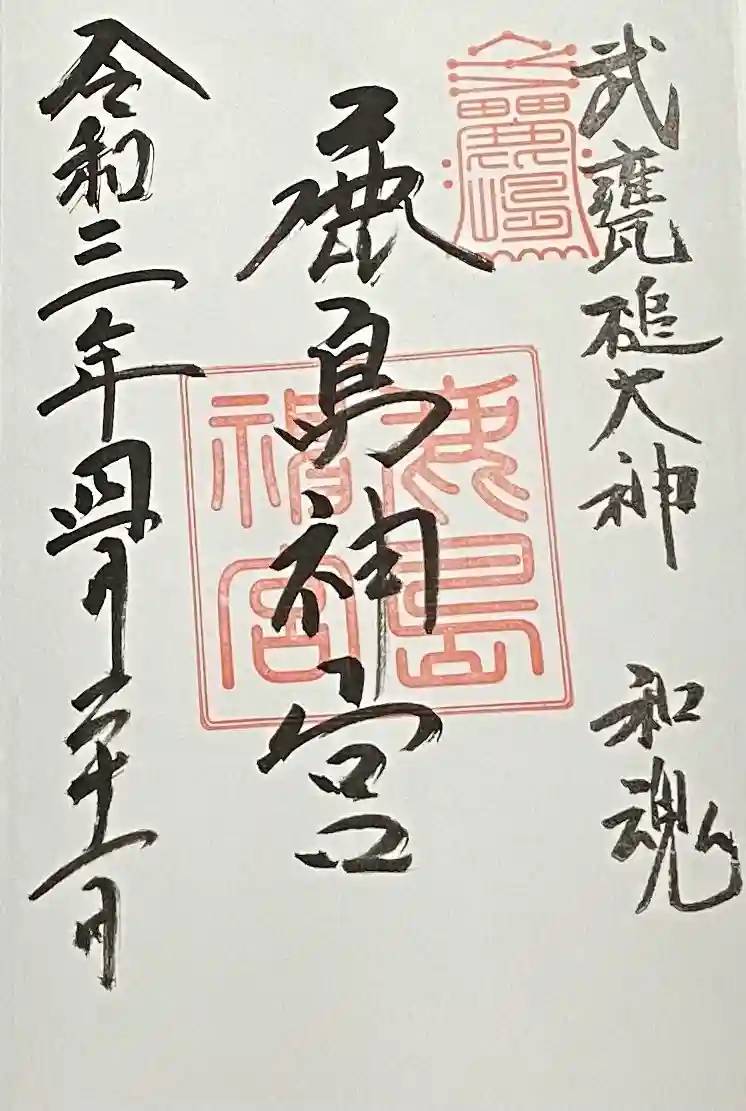 武甕槌大神 和魂
鹿島神宮
鹿島
神宮
令和三年四月二十一日